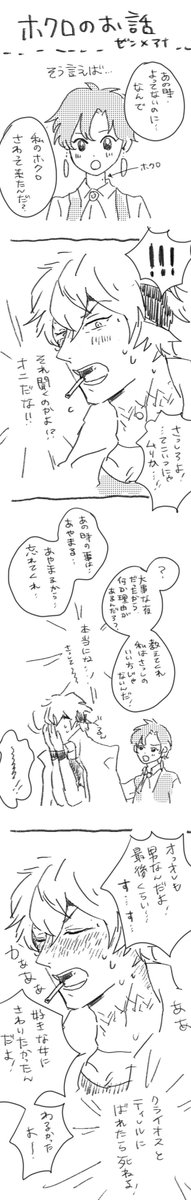 ホクロのお話
ゼン×アナ
そう言えば…
あの時
よってないのに
なんで
ホクロ
私のホクロ
さわって来たんだ？
!!!
それ聞くのかよ!?
オニだない!!
さっしろよ！
…てこいつにゃ
ムリか…!
あの時の事は…
あやまる…
あやまるから…
忘れてくれ…
？
大事な夜
だったから
何か理由が
あるんだろう？
教えてくれ
私はさっしの
いい方じゃ
ないんだ！
本当にな…
オっオレも
男なんだよ！
最後くらい…
す…す…
かぁぁぁ
好きな女に
さわりたかったん
だよ！
わるかった
よー！
クライオスと
ティルに
ばれたら死ねる！